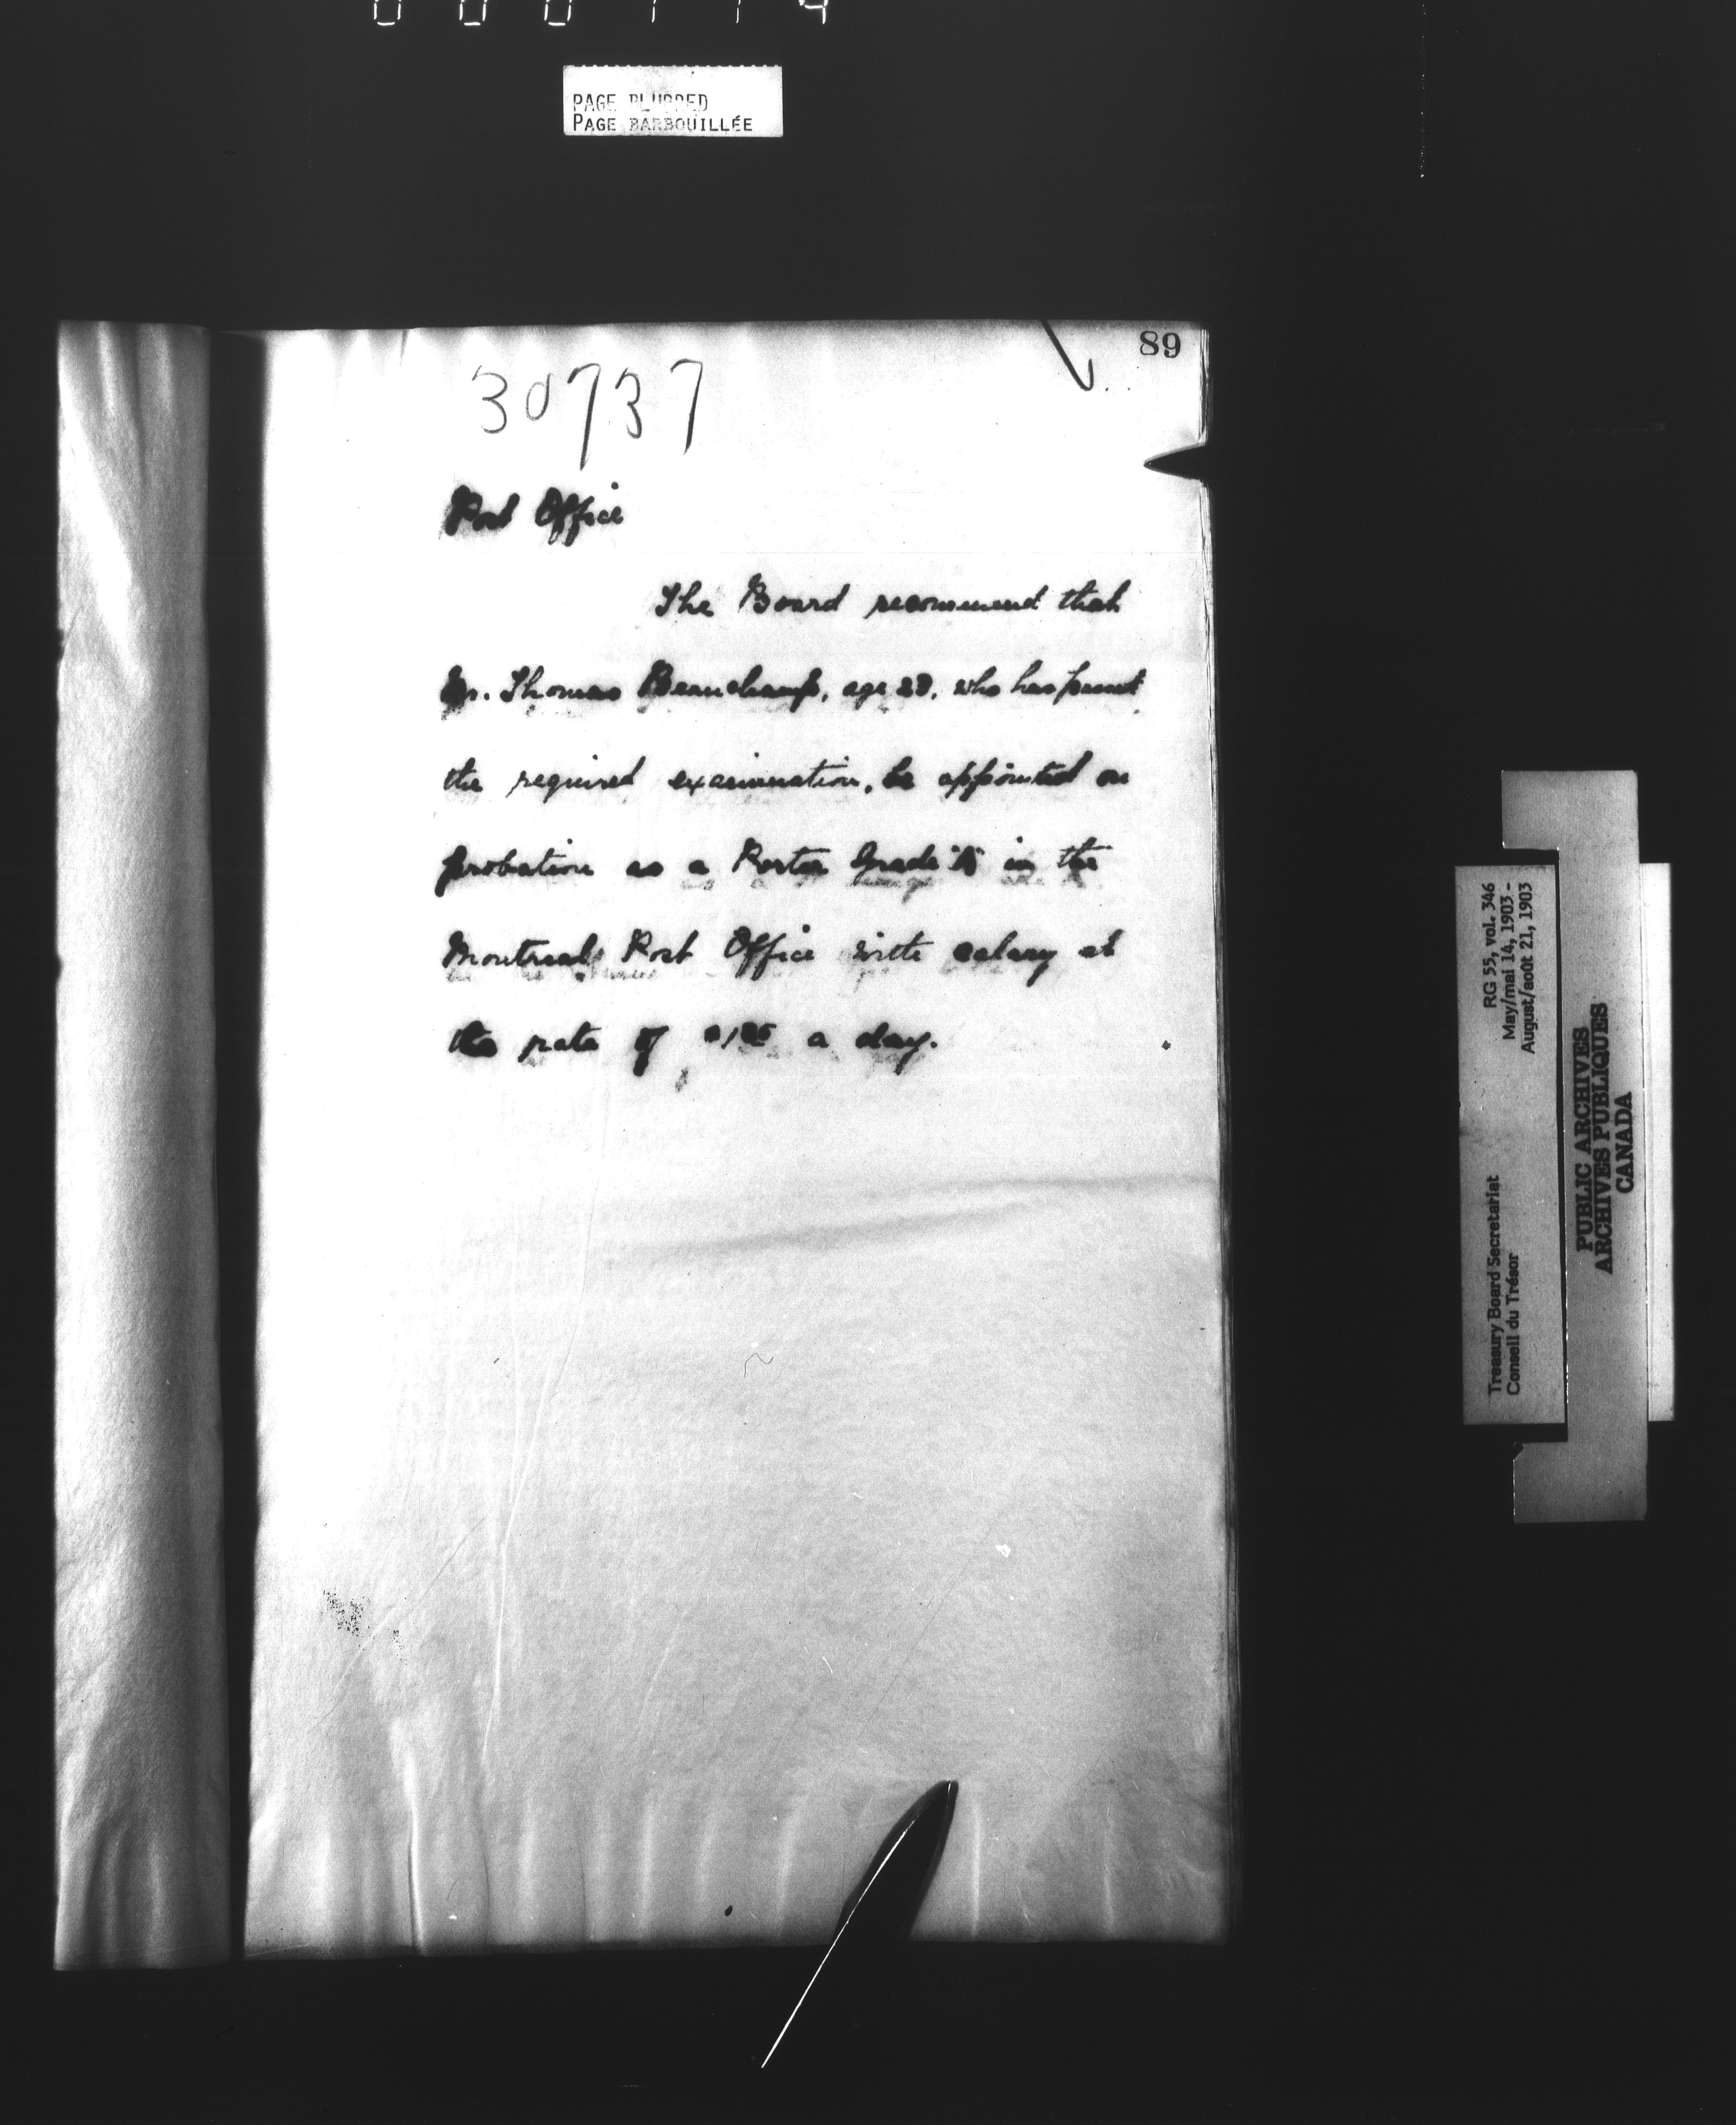 PAGE BLURRED
PAGE BARBOUILLÉE
89
30737
Post Office
The Board recommend that
Mr. Thomas Beauchamp, age 23, who has passed
the required examination, be appointed on
probation as a Porter Grade "A" in the
Montreal Post Office with salary at
the rate of $1.25 a day.
RG 55, vol. 346
May/mai 14, 1903 -
August/août 21, 1903
Treasury Board Secretariat
Conseil du Trésor
PUBLIC ARCHIVES
ARCHIVES PUBLIQUES
CANADA